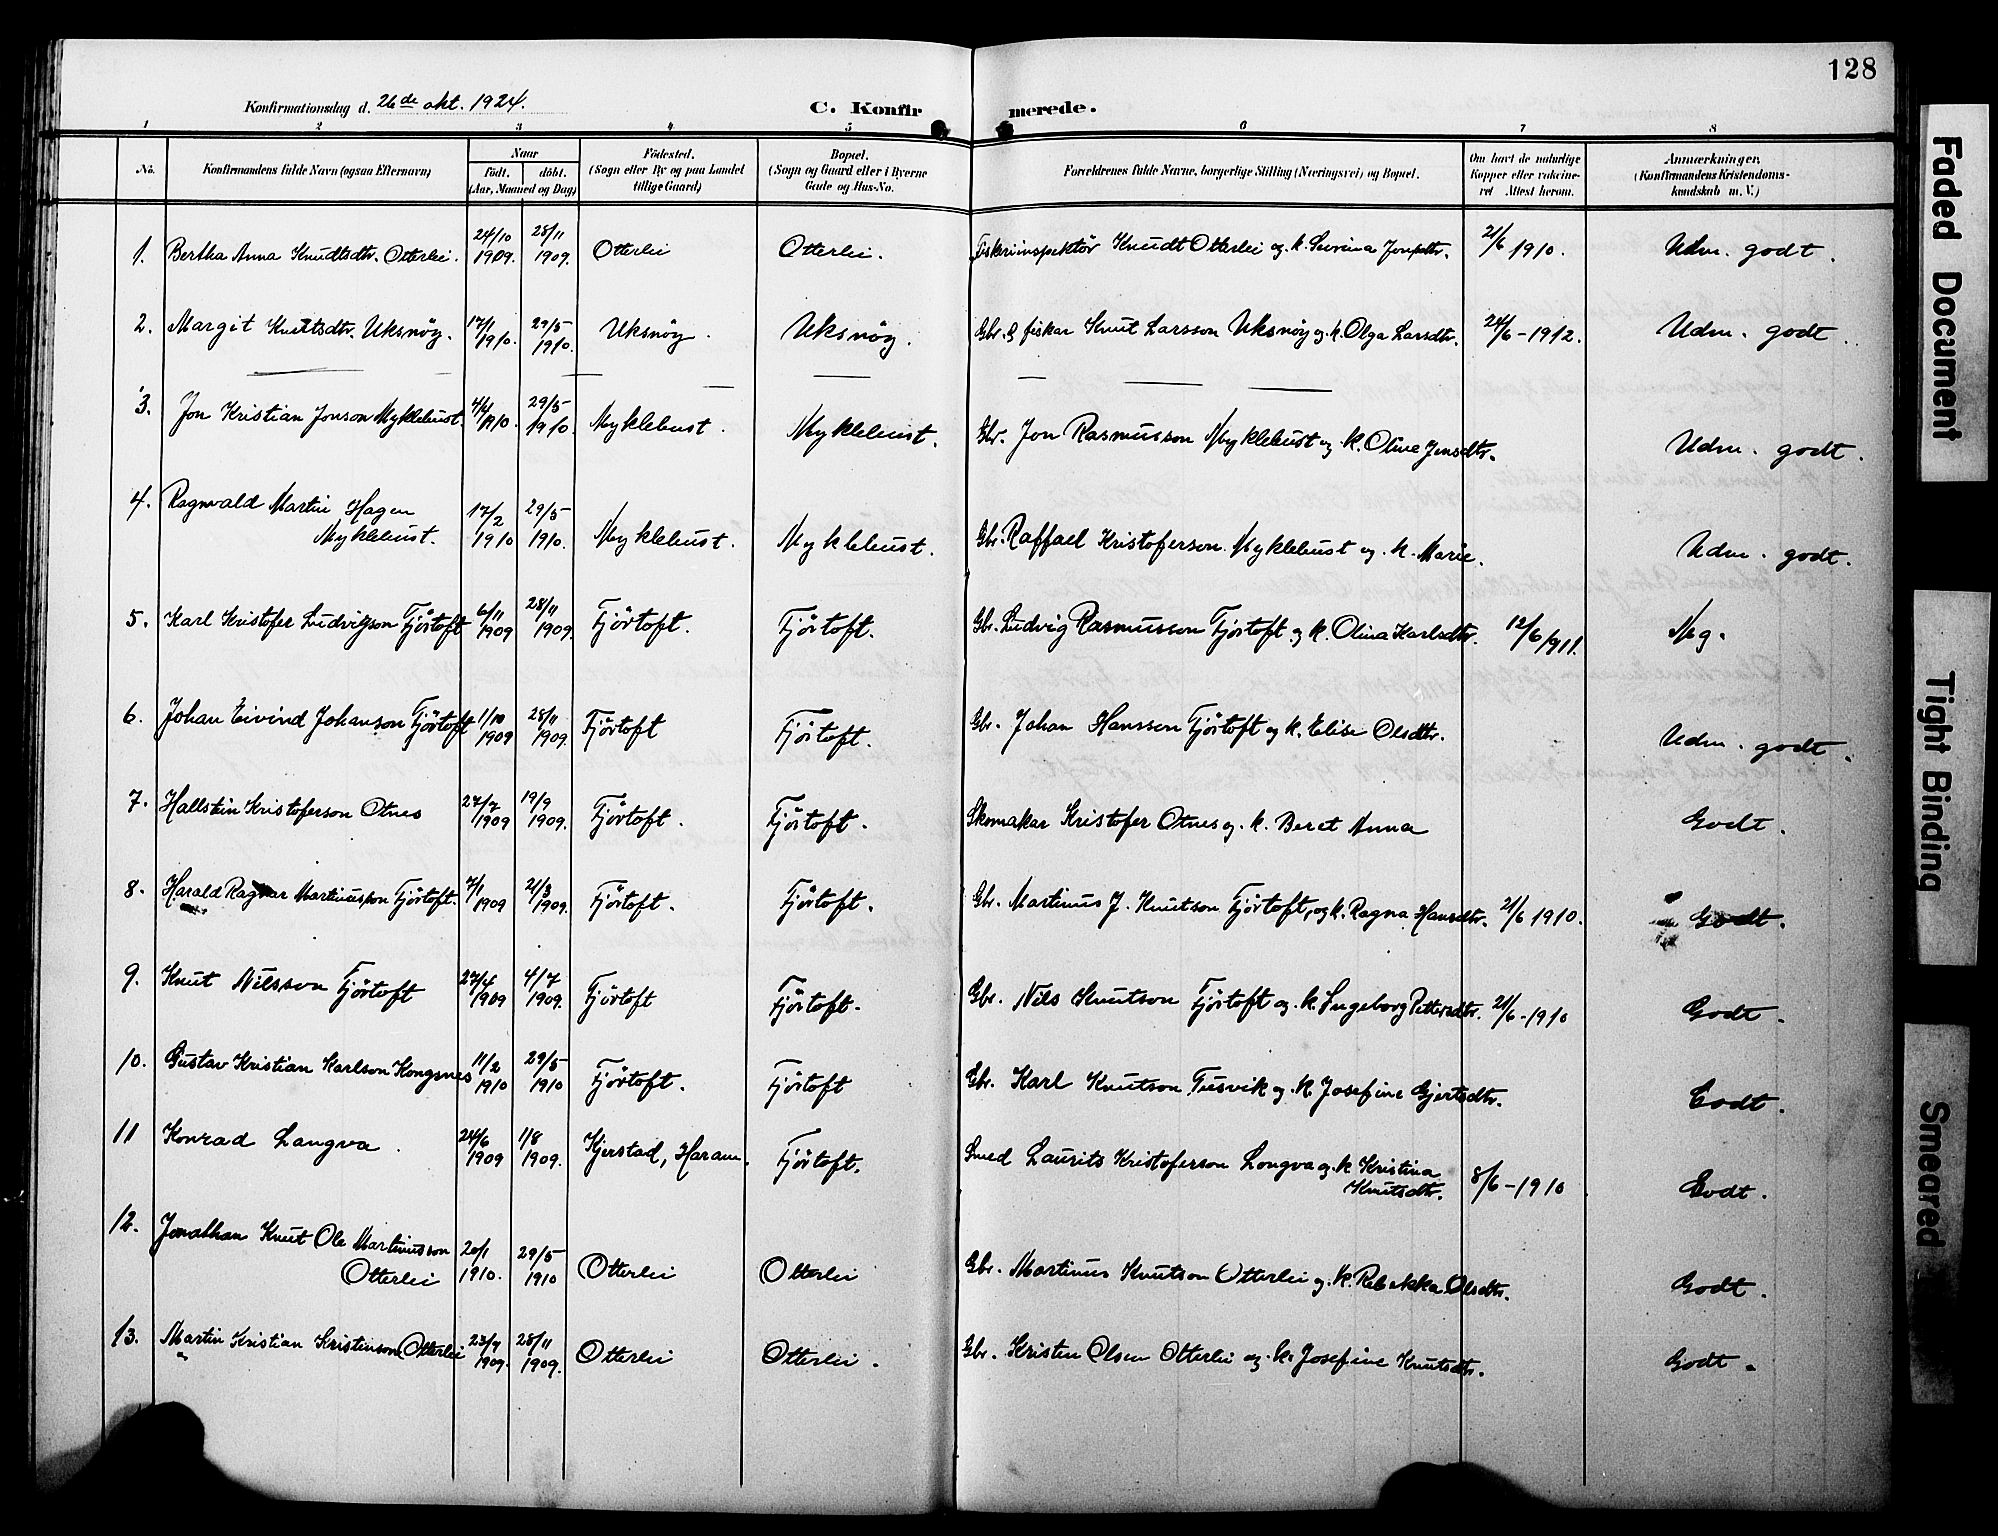 128
Konfirmationsdag d. 26de okt. 1924.
C. Konfirmerede.
1 2 3 4 5 6 7 8
No. | Konfirmandens fulde Navn (ogsaa Efternavn) | Naar født. døbt. (Aar, Maaned og Dag) | Fødested. (Sogn eller By og paa Landet tillige Gaard) | Bopæl. (Sogn og Gaard eller i Byerne Gade og Hus-No. | Forældrenes fulde Navne, borgerlige Stilling (Næringsvei) og Bopæl. | Om havt de naturlige Kopper eller vakcineret Attest herom. | Anmærkninger. (Konfirmandens Kristendomskundskab m. V.)
1. Bertha Anna Knudtsdtr. Otterlei. 24/10 1909. 28/11 1909. Otterlei Otterlei. Fiskeriinspektör Knudt Otterlei og k. Severina Jonsdtr. 21/6 1910. Udm. godt.
2. Margit Knutsdtr. Uksnöy. 17/1 1910. 29/5 1910. Uksnöy. Uksnöy. Gbr. & fiskar Knut Larsson Uksnöy og k. Olga Larsdtr. 24/6-1912. Udm. godt.
3. Jon Kristian Jonson Myklebust. 4/4 1910. 29/5 1910. Myklebust. Myklebust. Gbr. Jon Rasmusson Myklebust og k. Oline Jensdtr. Udm. godt.
4. Ragnvald Martin Hagen
Myklebust. 17/2 1910 29/5 1910. Myklebust. Myklebust. Gbr. Raffael Kristoferson Myklebust og k. Marie. Udm. godt.
5. Karl Kristofer Ludvigson Fjörtoft 6/11 1909 28/11 1909. Fjörtoft. Fjörtoft. Gbr. Ludvig Rasmusson Fjörtoft og k. Olina Karlsdtr. 12/6 1911. Mg.
6. Johan Eivind Johanson Fjörtoft 1/10 1909 28/11 1909. Fjörtoft Fjörtoft. Gbr. Johan Hansson Fjörtoft og k. Elise Olsdtr. Udm. godt.
7. Hallstein Kristoferson Otnes 27/7 1909 19/9 1909. Fjörtoft. Fjörtoft. Skomakar Kristofer Otnes og k. Beret Anna Godt.
8. Harald Ragnar Martinusson Fjörtoft. 7/1 1909 21/3 1909. Fjörtoft. Fjörtoft. Gbr. Martinus J. Knutson Fjörtoft, og k. Ragna Hansdtr. 21/6 1910. Godt.
9. Knut Nilsson Fjörtoft 27/4 1909 4/7 1909. Fjörtoft Fjörtoft. Gbr. Nils Knutson Fjörtoft og k. Ingeborg Pettersdtr. 21/6-1910 Godt.
10. Gustav Kristian Karlson Kongsnes 11/2 1910 29/5 1910 Fjörtoft. Fjörtoft Gbr. Karl Knutson Tusvik og k. Josefine Gjertsdtr. Godt.
11 Konrad Langva. 24/6 1909 1/8 1909. Kjerstad, Haram. Fjörtoft. Smed Laurits Kristoferson Longva og k Kristina
Knutsdtr. 8/6-1910 Godt.
12. Jonathan Knut Ole Martinusson
Otterlei 20/1 1910. 29/5 1910 Otterlei Otterlei Gbr. Martinus Knutson Otterlei og k. Rebekka Olsdtr. Godt.
13. Martin Kristian Kristenson Otterlei 23/9 1909. 28/11 1909. Otterlei Otterlei. Gbr. Kristen Olsen Otterlei og k. Josefine Knutsdtr. Godt.
Faded Document
Tight Binding
Smeared